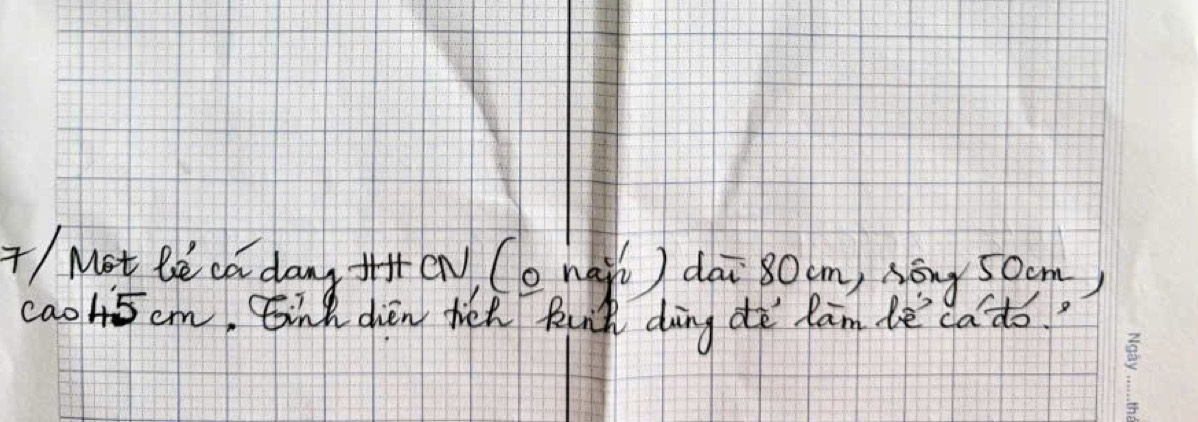 7/ Một bể cá dạng HHCN (o nắp) dài 80cm, rộng 50cm,
cao 45 cm. Tính diện tích kính dùng để làm bể cá đó?
Ngày ......thá